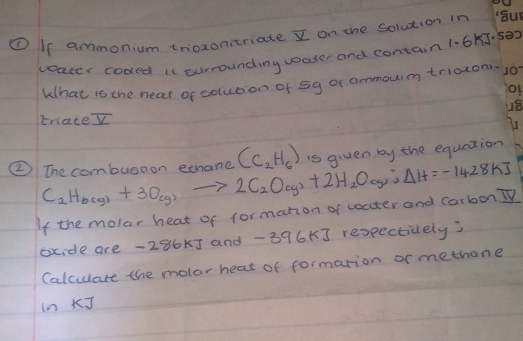 ① If ammonium trioxonitriate V on the solution in
water cooled it surrounding water and contain 1.6KJ.
What is the heat of solution of 5g of ammouim trioxoni-
triate V
② The combusoon ethane (C₂H₆) is given by the equation
C₂H₆(g) + 3O(g) → 2C₂O(g) + 2H₂O(g); ΔH = -1428KJ
If the molar heat of formation of water and carbon IV
oxide are -286KJ and -396KJ respectively;
Calculate the molar heat of formation of methane
in KJ